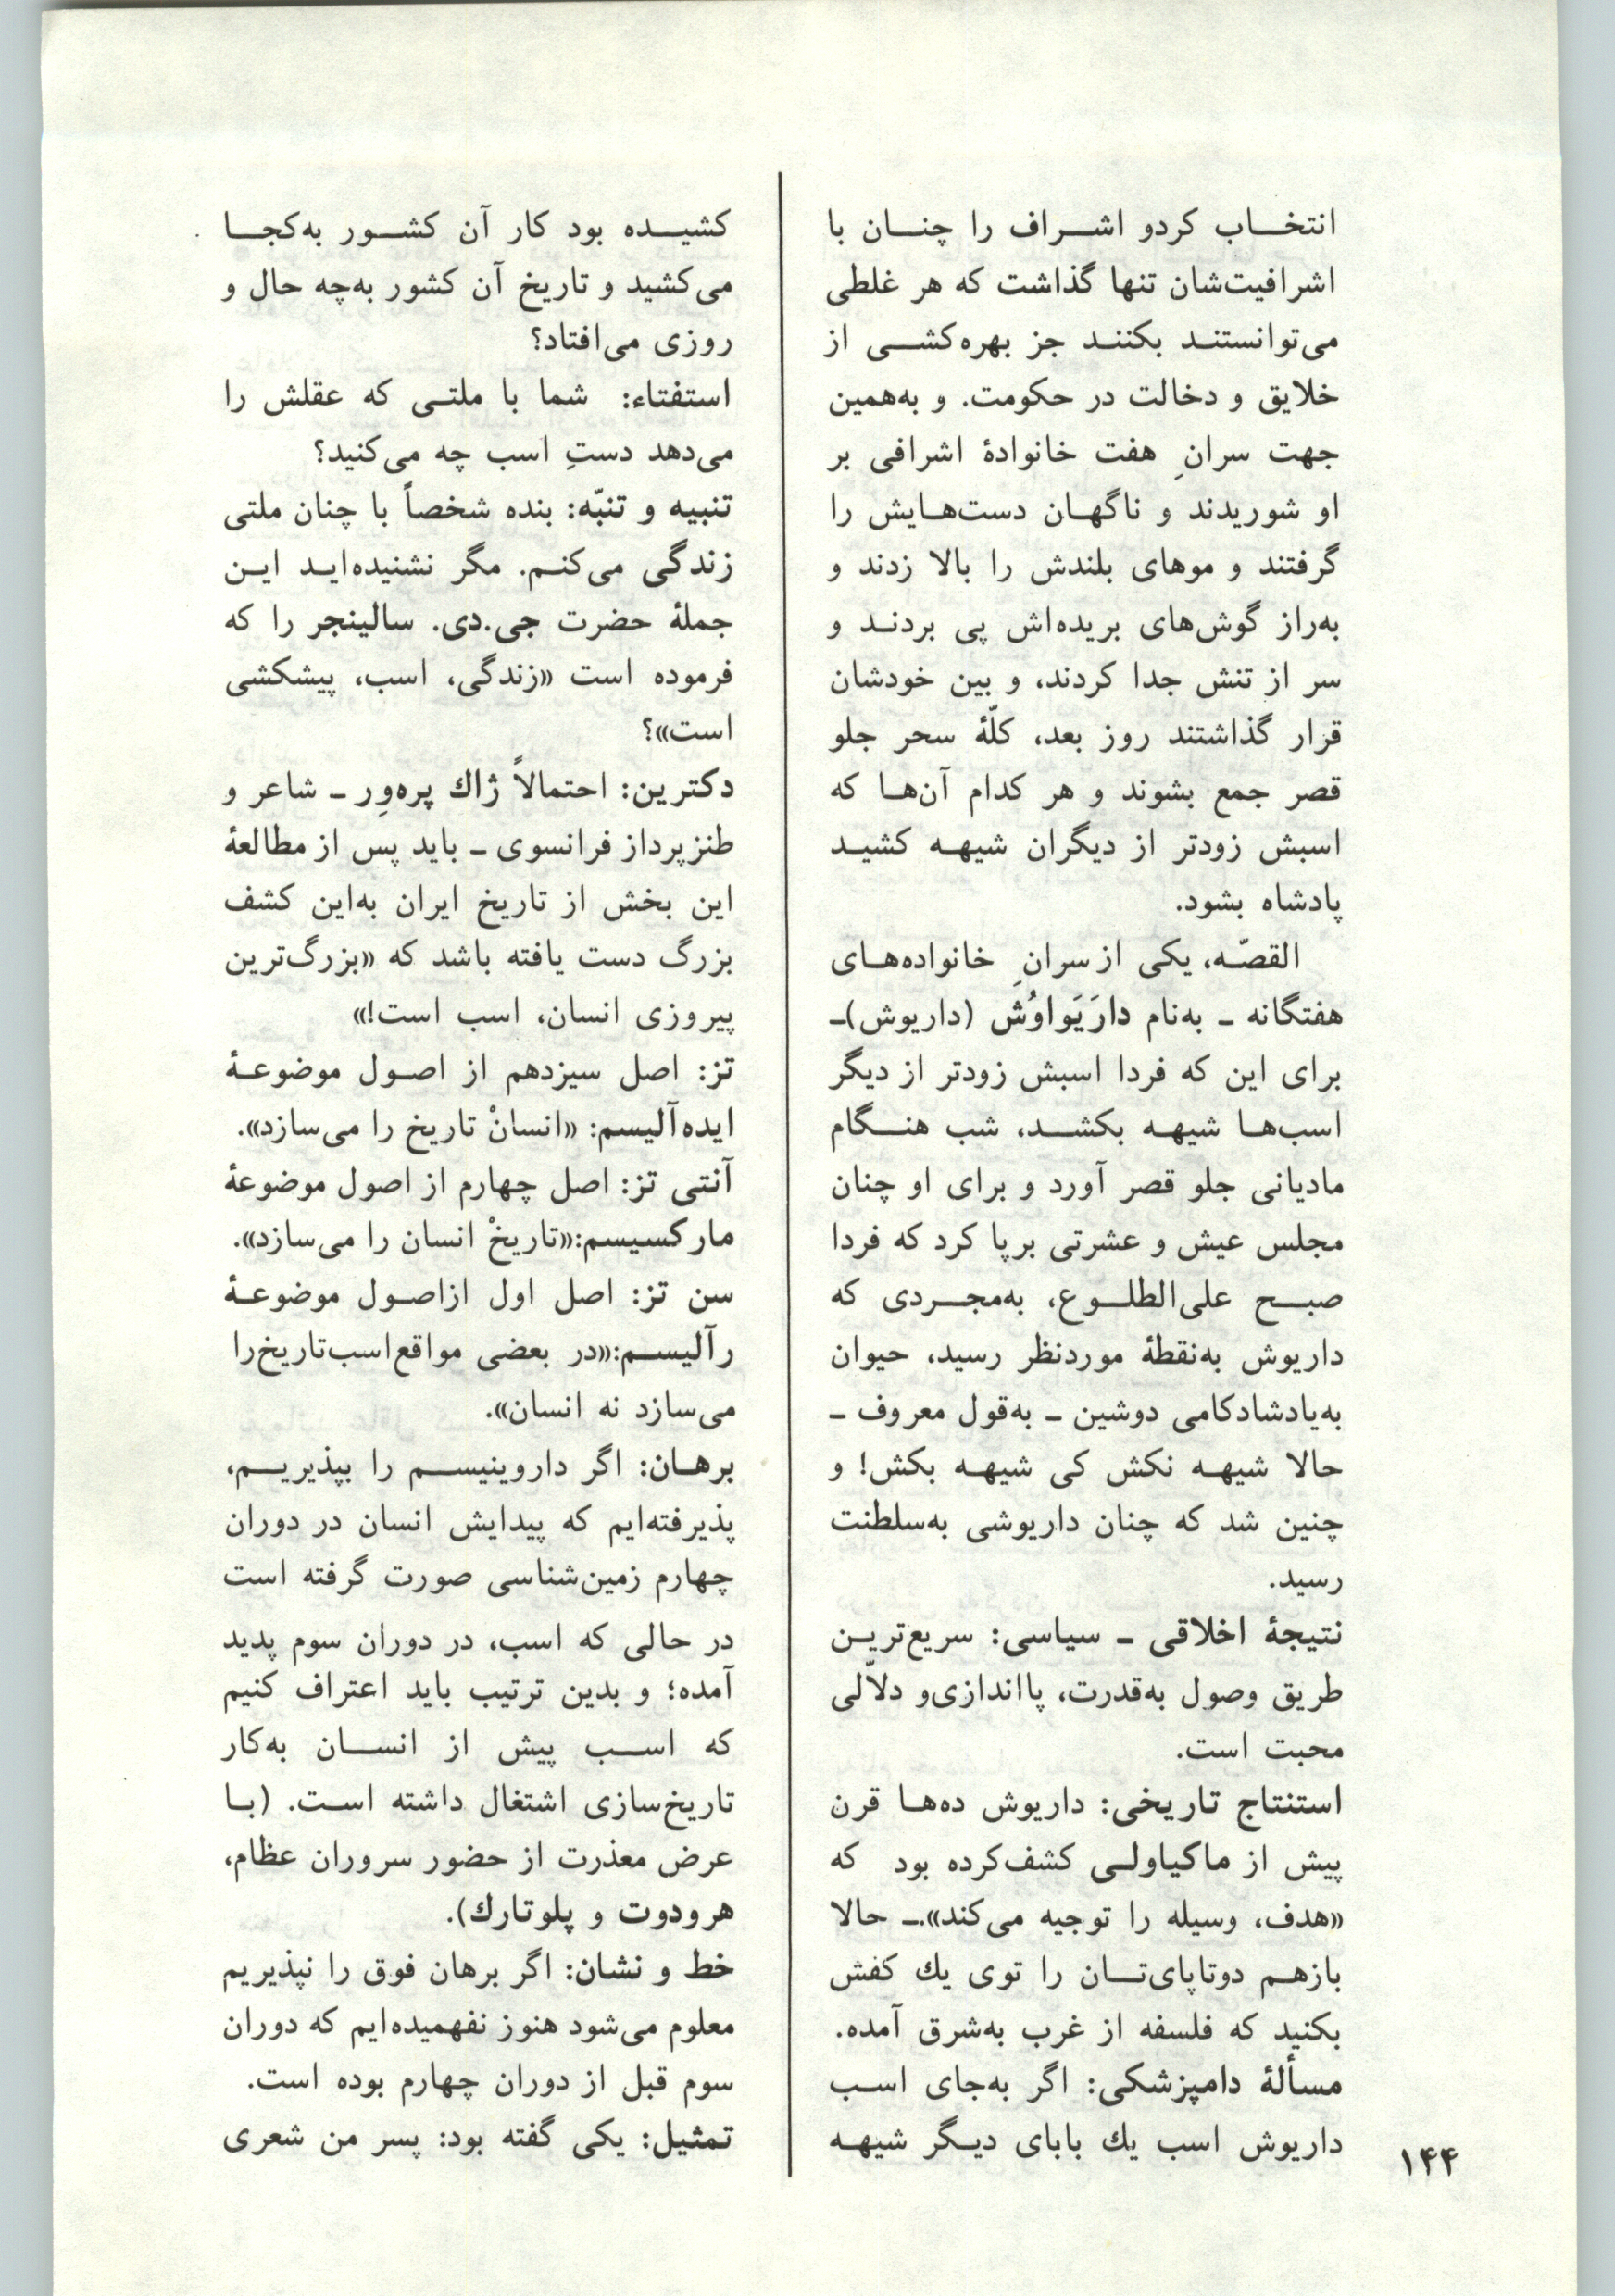 انتخاب کردو اشراف را چنان با
اشرافیت‌شان تنها گذاشت که هر غلطی
می‌توانستند بکنند جز بهره‌کشی از
خلایق و دخالت در حکومت. و به‌همین
جهت سرانِ هفت خانوادهٔ اشرافی بر
او شوریدند و ناگهان دست‌هایش را
گرفتند و موهای بلندش را بالا زدند و
به‌راز گوش‌های بریده‌اش پی بردند و
سر از تنش جدا کردند، و بین خودشان
قرار گذاشتند روز بعد، کلّهٔ سحر جلو
قصر جمع بشوند و هر کدام آن‌ها که
اسبش زودتر از دیگران شیهه کشید
پادشاه بشود.
القصّه، یکی از سرانِ خانواده‌های
هفتگانه ـ به‌نام دارَیَواوُش (داریوش)ـ
برای این که فردا اسبش زودتر از دیگر
اسب‌ها شیهه بکشد، شب هنگام
مادیانی جلو قصر آورد و برای او چنان
مجلس عیش و عشرتی برپا کرد که فردا
صبح علی‌الطلوع، به‌مجردی که
داریوش به‌نقطهٔ موردنظر رسید، حیوان
به‌یادشادکامی دوشین ـ به‌قول معروف ـ
حالا شیهه نکش کی شیهه بکش! و
چنین شد که چنان داریوشی به‌سلطنت
رسید.
نتیجهٔ اخلاقی ـ سیاسی: سریع‌ترین
طریق وصول به‌قدرت، پااندازی‌و دلاّلی
محبت است.
استنتاج تاریخی: داریوش ده‌ها قرن
پیش از ماکیاولی کشف‌کرده بود که
«هدف، وسیله را توجیه می‌کند».ـ حالا
بازهم دوتاپای‌تان را توی یك کفش
بکنید که فلسفه از غرب به‌شرق آمده.
مسألهٔ دامپزشکی: اگر به‌جای اسب
داریوش اسب یك بابای دیگر شیهه
کشیده بود کار آن کشور به‌کجا
می‌کشید و تاریخ آن کشور به‌چه حال و
روزی می‌افتاد؟
استفتاء: شما با ملتی که عقلش را
می‌دهد دستِ اسب چه می‌کنید؟
تنبیه و تنبّه: بنده شخصاً با چنان ملتی
زندگی می‌کنم. مگر نشنیده‌اید این
جملهٔ حضرت جی.دی. سالینجر را که
فرموده است «زندگی، اسب، پیشکشی
است»؟
دکترین: احتمالاً ژاك پره‌وِر ـ شاعر و
طنزپرداز فرانسوی ـ باید پس از مطالعهٔ
این بخش از تاریخ ایران به‌این کشف
بزرگ دست یافته باشد که «بزرگ‌ترین
پیروزی انسان، اسب است!»
تز: اصل سیزدهم از اصول موضوعهٔ
ایده‌آلیسم: «انسانْ تاریخ را می‌سازد».
آنتی تز: اصل چهارم از اصول موضوعهٔ
مارکسیسم:«تاریخْ انسان را می‌سازد».
سن تز: اصل اول ازاصول موضوعهٔ
رآلیسم:«در بعضی مواقع‌اسب‌تاریخ‌را
می‌سازد نه انسان».
برهان: اگر داروینیسم را بپذیریم،
پذیرفته‌ایم که پیدایش انسان در دوران
چهارم زمین‌شناسی صورت گرفته است
در حالی که اسب، در دوران سوم پدید
آمده؛ و بدین ترتیب باید اعتراف کنیم
که اسب پیش از انسان به‌کار
تاریخ‌سازی اشتغال داشته است. (با
عرض معذرت از حضور سروران عظام،
هرودوت و پلوتارك).
خط و نشان: اگر برهان فوق را نپذیریم
معلوم می‌شود هنوز نفهمیده‌ایم که دوران
سوم قبل از دوران چهارم بوده است.
تمثیل: یکی گفته بود: پسر من شعری
۱۴۴